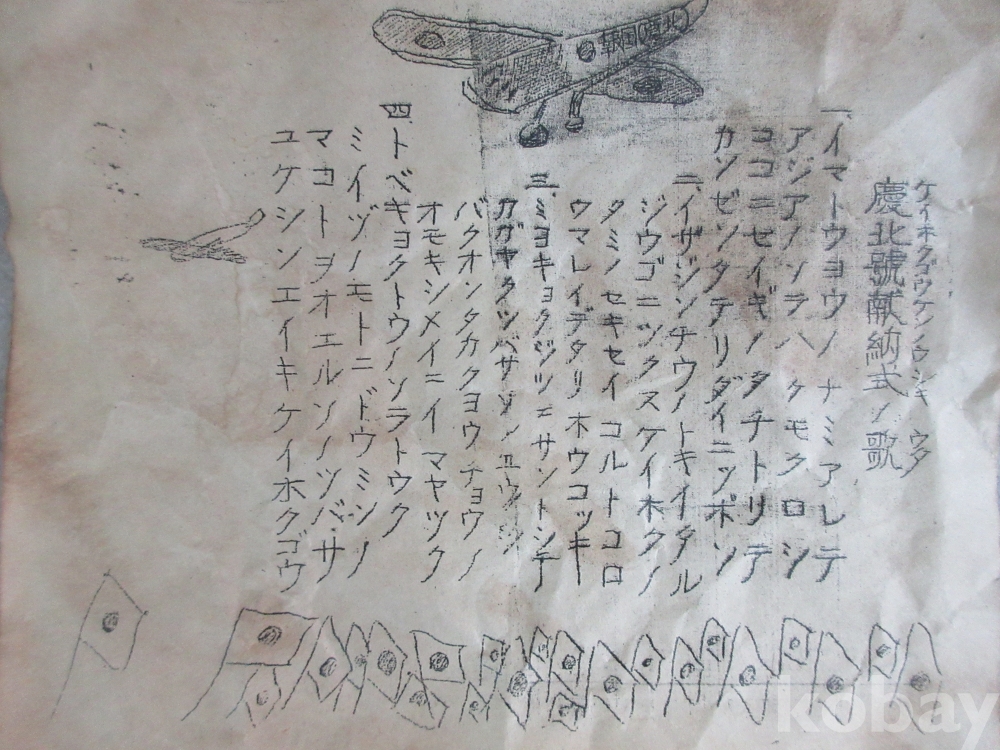 ケイホクゴウケンノウシキ ウタ
慶北號献納式ノ歌
一、イマトウヨウノ ナミアレテ
アジアノソラハ クモクロシ
ココニセイギノタチトリテ
カンゼンタテリダイニッポン
二、イザジンチウノトキイタル
ジウゴニツクスケイホクノ
タミノセキセイ コルトコロ
ウマレイデタリホウコッキ
三、ミヨキョクジツニサントシテ
カガヤクツバサソノユウシ
バクオンタカクヨウチョウノ
オモキシメイニイマヤツク
四、トベキョクトウノソラトウク
ミイヅノモトニドウミンノ
マコトヲオエルソノツバサ
ユケシンエイキケイホクゴウ
kobay